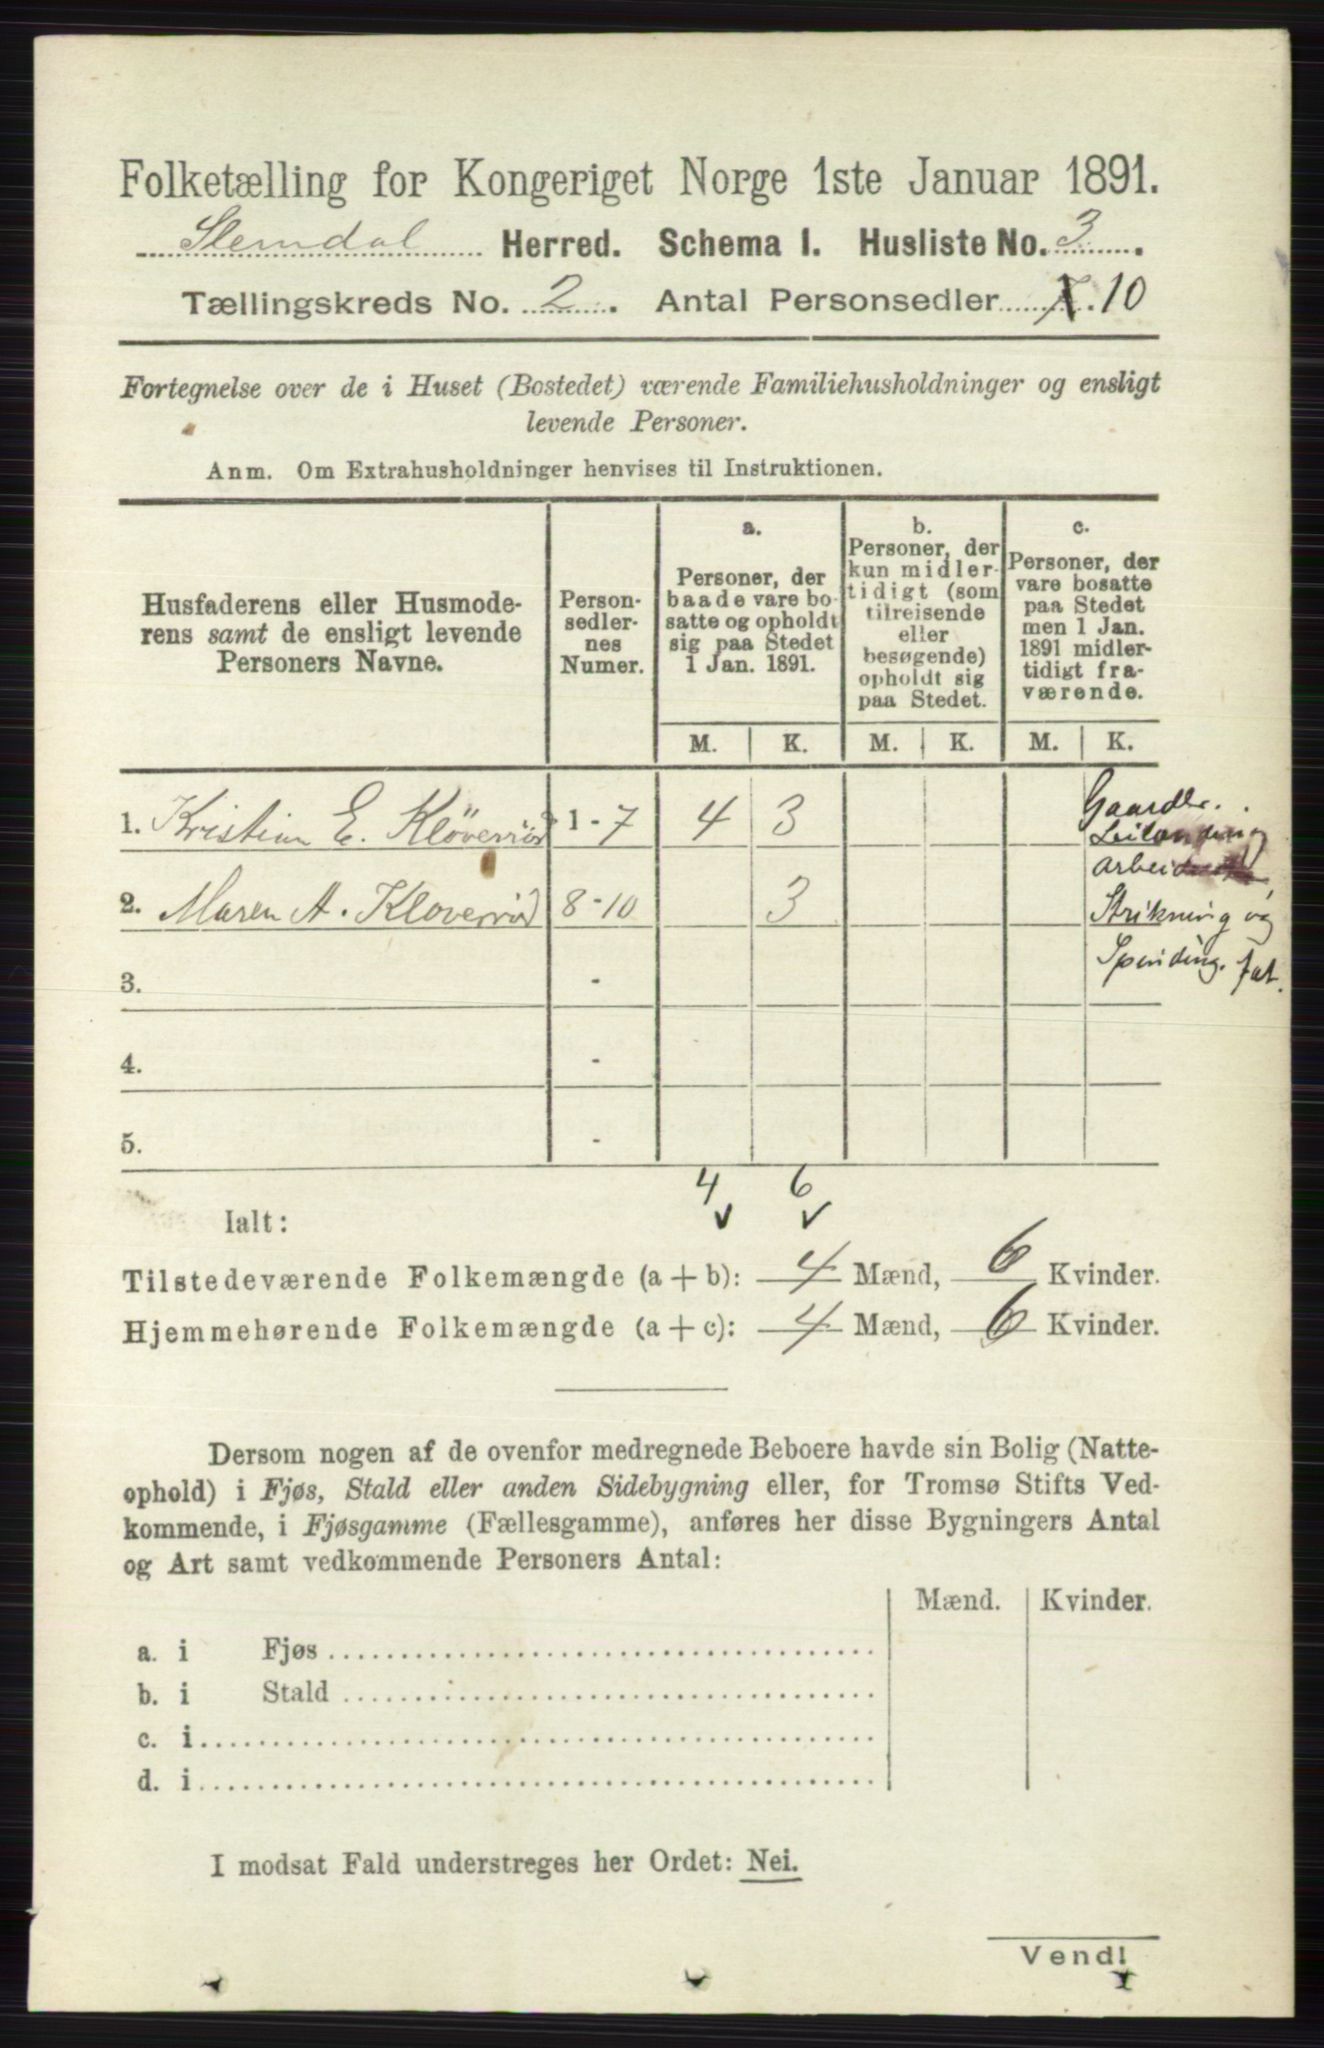 Folketælling for Kongeriget Norge 1ste Januar 1891.
Slemdal Herred. Schema I. Husliste No. 3.
Tællingskreds No. 2. Antal Personsedler 10
Fortegnelse over de i Huset (Bostedet) værende Familiehusholdninger og ensligt
levende Personer.
Anm. Om Extrahusholdninger henvises til Instruktionen.
Husfaderens eller Husmode-
rens samt de ensligt levende
Personers Navne.
Person-
sedler-
nes
Numer.
a.
Personer, der
baade vare bo-
satte og opholdt
sig paa Stedet
1 Jan. 1891.
b.
Personer, der
kun midler-
tidigt (som
tilreisende
eller
besøgende)
opholdt sig
paa Stedet.
c.
Personer, der
vare bosatte
paa Stedet
men 1 Jan.
1891 midler-
tidigt fra-
værende.
M. K. M. K. M. K.
1. Kristian E. Klöverød 1-7 4 3
Gaardbr.
Leilænding
Arbeid
2. Maren A. Kloverød 8-10 3
Strikning og
Spinding. fat.
3. -
4. -
5. -
4 6
Ialt:
Tilstedeværende Folkemængde (a + b): 4 Mænd, 6 Kvinder.
Hjemmehørende Folkemængde (a + c): 4 Mænd, 6 Kvinder.
Dersom nogen af de ovenfor medregnede Beboere havde sin Bolig (Natte-
ophold) i Fjøs, Stald eller anden Sidebygning eller, for Tromsø Stifts Ved-
kommende, i Fjøsgamme (Fællesgamme), anføres her disse Bygningers Antal
og Art samt vedkommende Personers Antal:
Mænd. Kvinder.
a. i Fjøs
b. i Stald
c. i
d. i
I modsat Fald understreges her Ordet: Nei.
Vend!